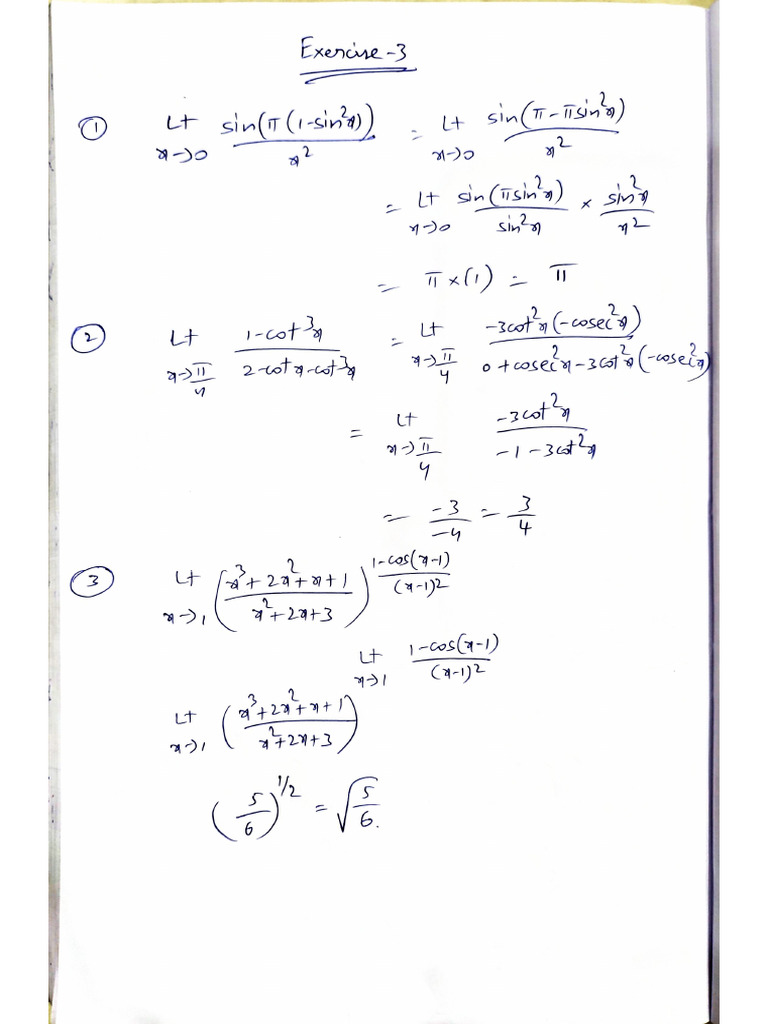 Exercise-3
① Lt x→0 sin(π(1-sin²x))/x² = Lt x→0 sin(π-πsin²x)/x²
= Lt x→0 sin(πsin²x)/sin²x × sin²x/x²
= π×(1) = π
② Lt x→π/4 1-cot³x/2-cotx-cot³x = Lt x→π/4 -3cot²x(-cosec²x)/0+cosec²x-3cot²x(-cosec²x)
= Lt x→π/4 -3cot²x/-1-3cot²x
= -3/-4 = 3/4
③ Lt x→1 (x³+2x²+x+1/x²+2x+3)^1-cos(x-1)/(x-1)²
Lt x→1 1-cos(x-1)/(x-1)²
Lt x→1 (x³+2x²+x+1/x²+2x+3)
(5/6)^1/2 = √5/6.